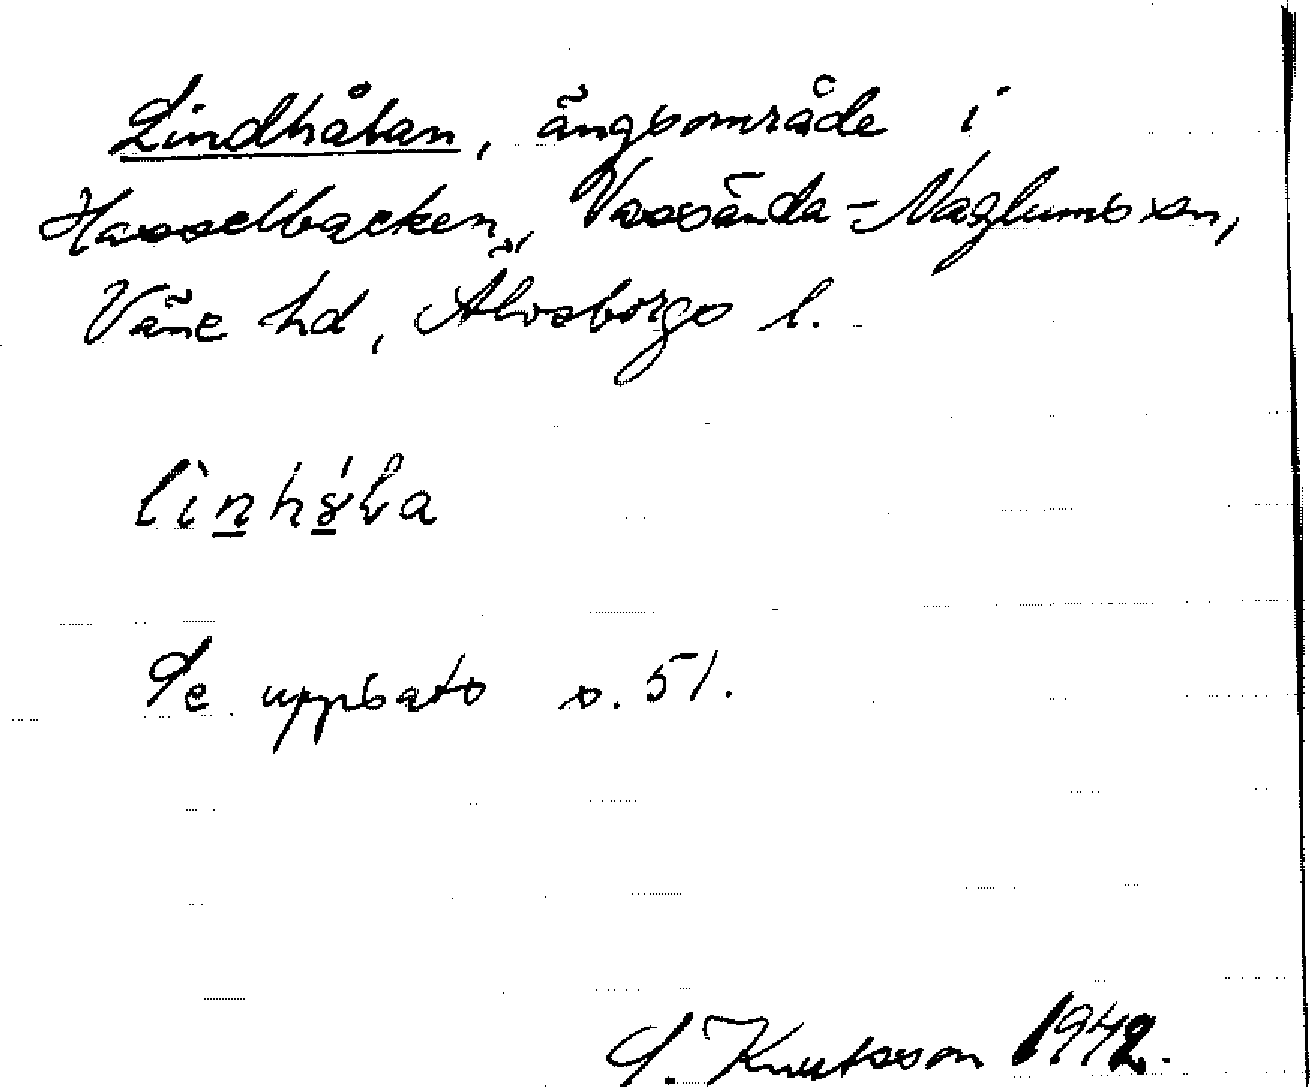 Lindhålan, ängsområde i
Hasselbacken, Vassända-Naglums sn,
Väne hd, Älvsborgs l.
Se uppsats s. 51.
S. Knutsson 1942.